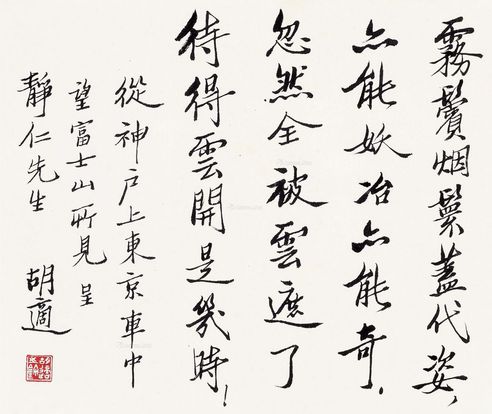 霧鬢烟鬟蓋代姿，
亦能妖冶亦能奇．
忽然全被雲遮了
待得雲開是幾時！
從神户上東京車中
望富士山所見 呈
靜仁先生 胡適